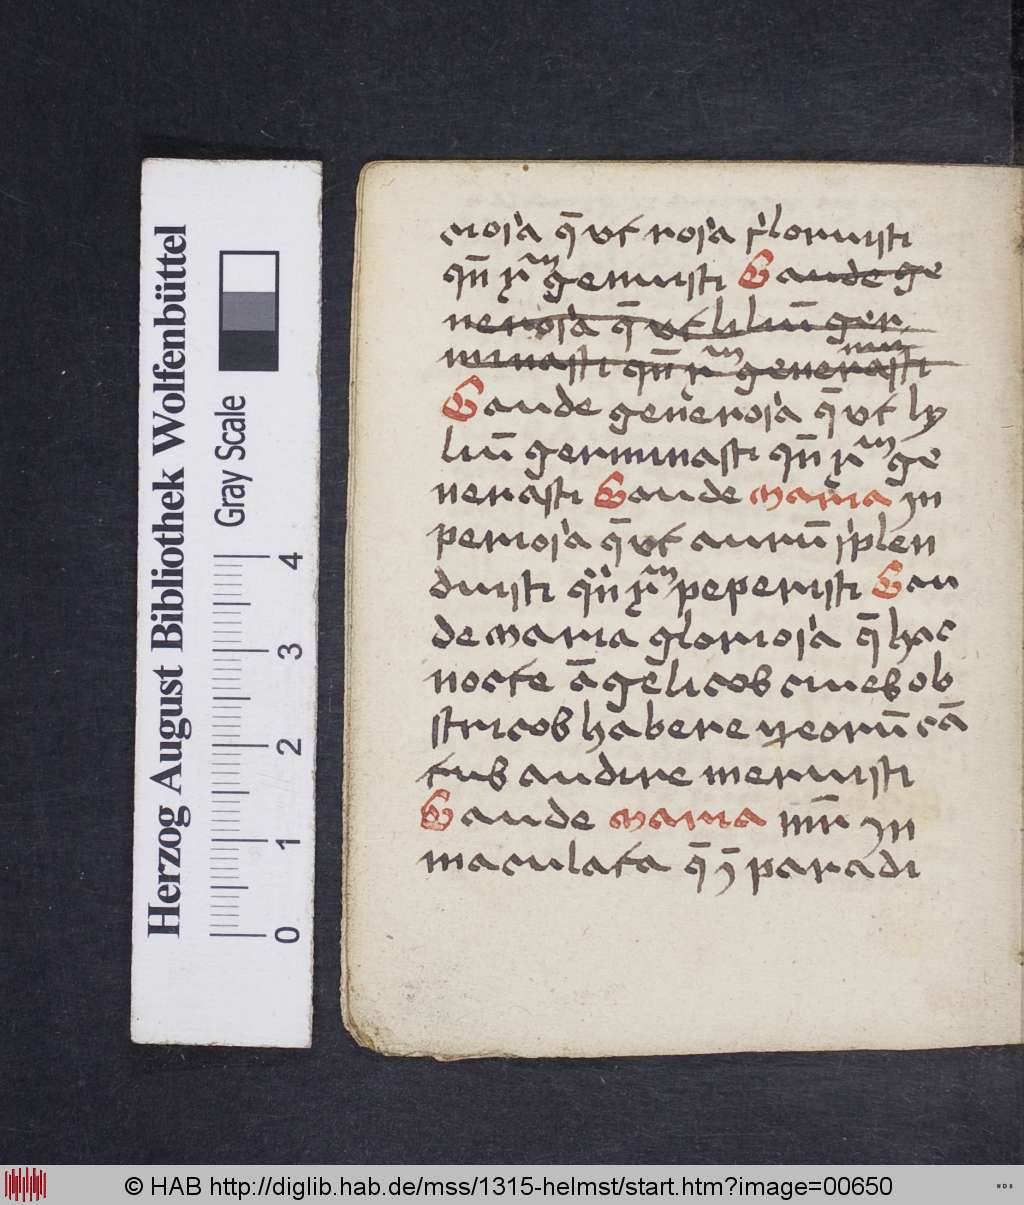 ciosa q̄ ut rosa floruisti
qn̄ xp̄m genuisti Gaude ge
nerosa q̄ ut liliū ger
minasti qn̄ xp̄m generasti
Gaude generosa q̄ ut ly
liū germinasti qn̄ xp̄m ge
nerasti Gaude maria in
periosa q̄ ut aurū splen
duisti qn̄ xp̄m peperisti Gau
de maria gloriosa q̄ hac
nocte āgelicos cives ob
stricos habere et eorū cā
tus audire meruisti
Gaude maria mr̄ in
maculata q̄ ī paradi
Herzog August Bibliothek Wolfenbüttel
Gray Scale
0 1 2 3 4
© HAB http://diglib.hab.de/mss/1315-helmst/start.htm?image=00650